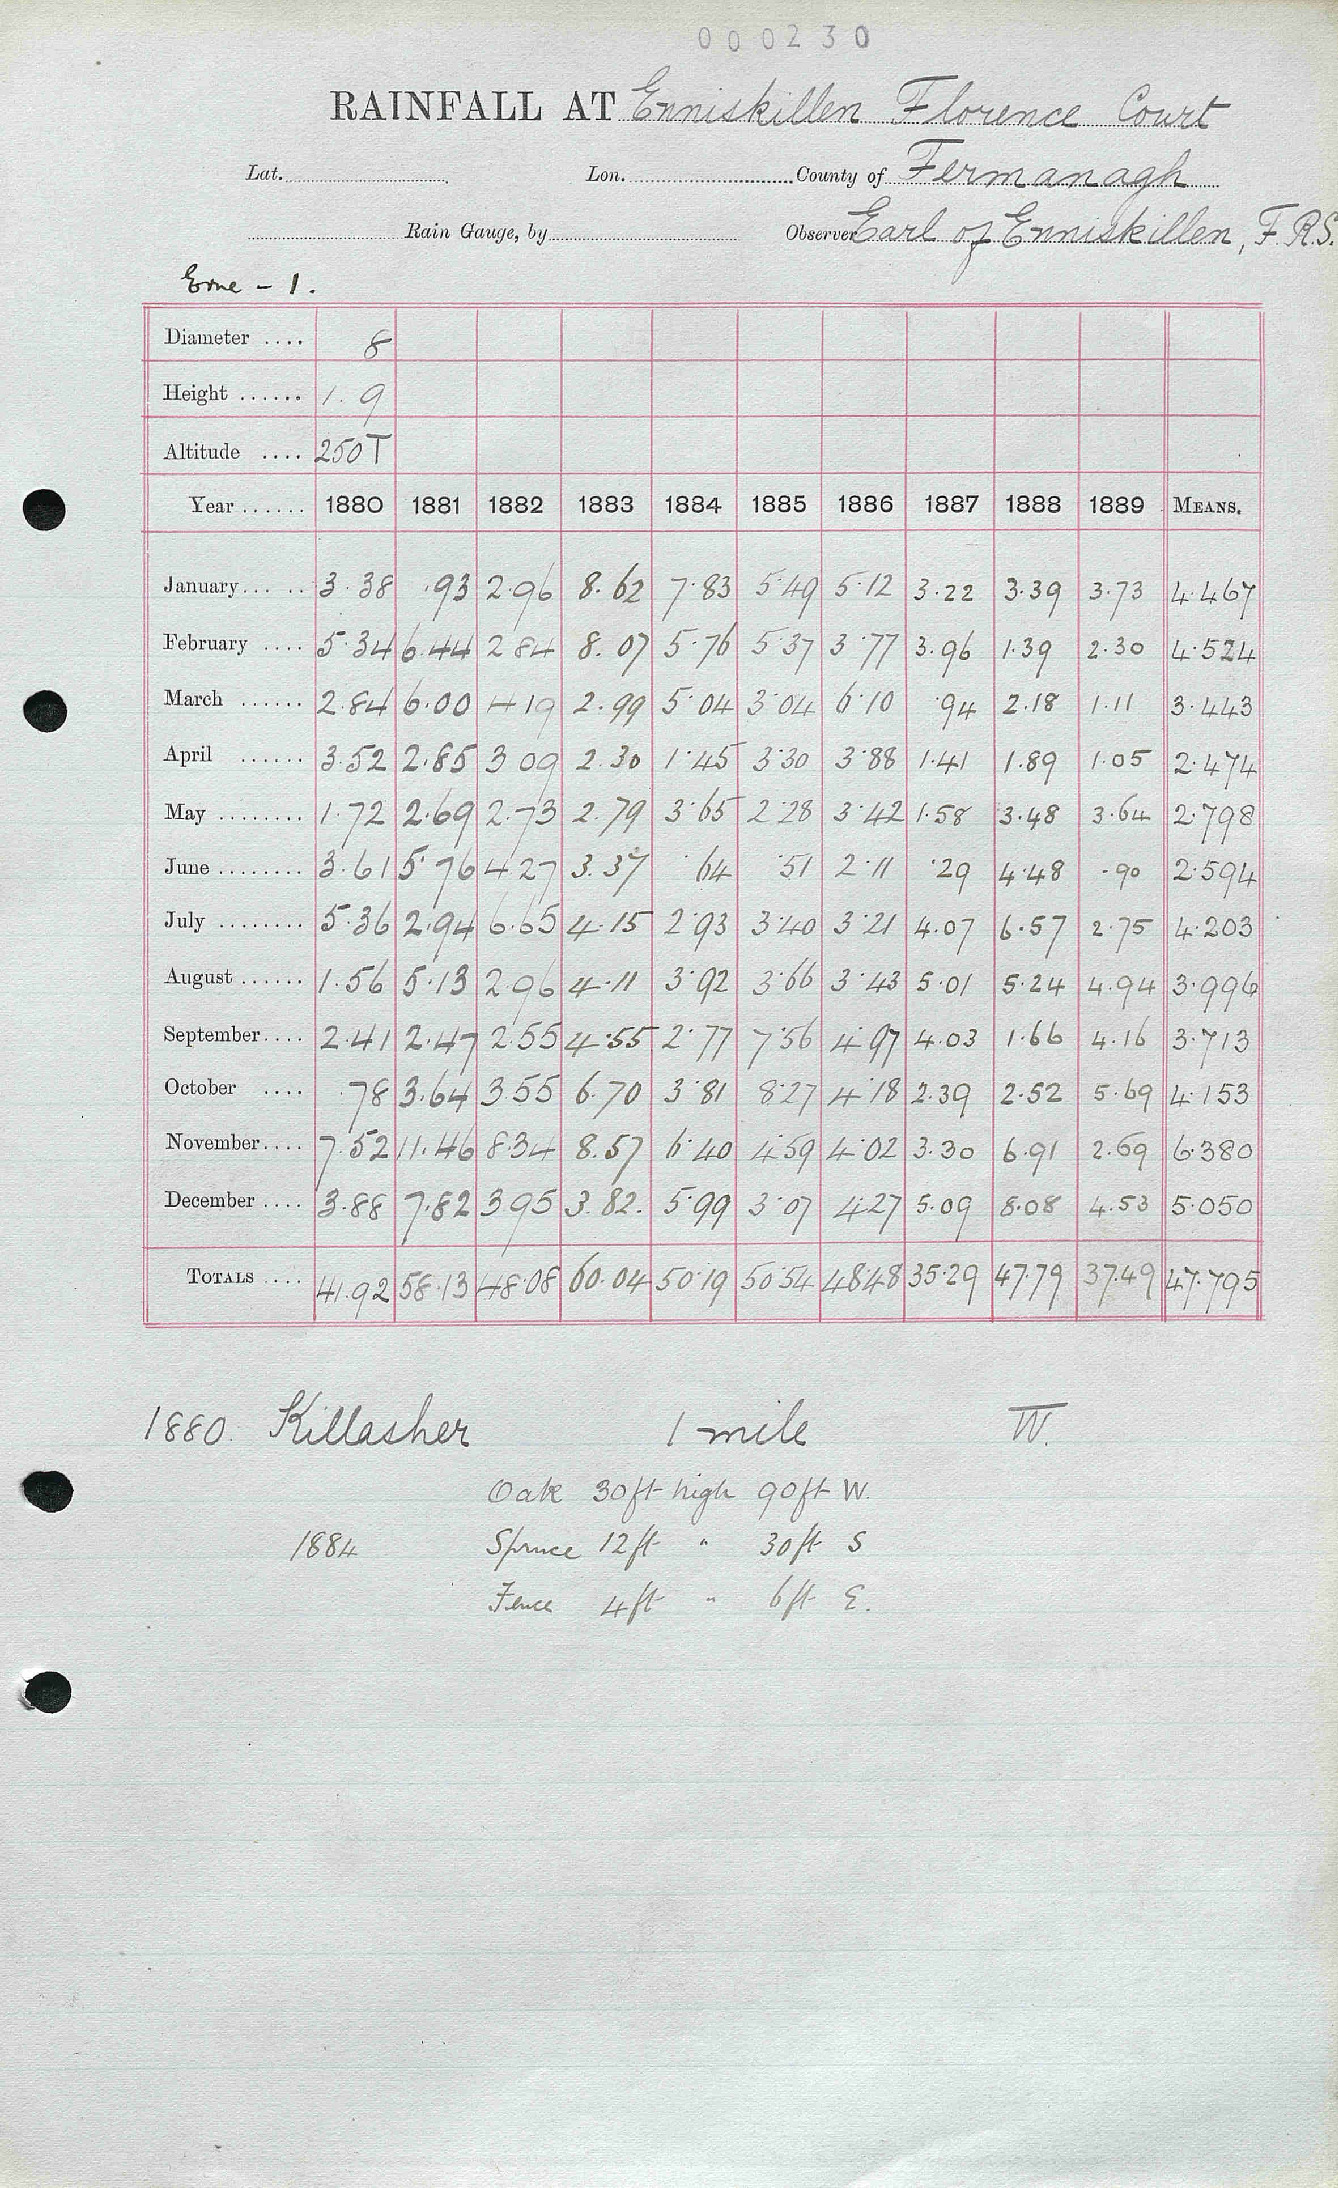 000230
RAINFALL AT Enniskillen Florence Court
Lat. Lon. County of Fermanagh
Rain Gauge, by Observer Earl of Enniskillen, F.R.S.
Erne - 1.
Diameter .... 8
Height ...... 1. 9
Altitude .... 250 T
Year ...... 1880 1881 1882 1883 1884 1885 1886 1887 1888 1889 MEANS.
January ... .. 3.38 .93 2.96 8.62 7.83 5.49 5.12 3.22 3.39 3.73 4.467
February .... 5.34 6.44 2 84 8.07 5.76 5.37 3.77 3.96 1.39 2.30 4.524
March ...... 2.84 6.00 4 19 2.99 5.04 3.04 6.10 .94 2.18 1.11 3.443
April ...... 3.52 2.85 3 09 2.30 1.45 3.30 3.88 1.41 1.89 1.05 2.474
May ........ 1.72 2.69 2.73 2.79 3.65 2.28 3.42 1.58 3.48 3.64 2.798
June ........ 3.61 5.76 4 27 3.37 .64 .51 2.11 .29 4.48 .90 2.594
July ........ 5.36 2.94 6.65 4.15 2.93 3.40 3.21 4.07 6.57 2.75 4.203
August ...... 1.56 5.13 2.96 4.11 3.92 3.66 3.43 5.01 5.24 4.94 3.996
September .... 2.41 2.47 2.55 4.55 2.77 7.56 4.97 4.03 1.66 4.16 3.713
October .... .78 3.64 3.55 6.70 3.81 8.27 4.18 2.39 2.52 5.69 4.153
November .... 7.52 11.46 8.34 8.57 6.40 4.59 4.02 3.30 6.91 2.69 6.380
December .... 3.88 7.82 3.95 3.82. 5.99 3.07 4.27 5.09 8.08 4.53 5.050
TOTALS .... 41.92 58.13 48.08 60.04 50.19 50.54 48.48 35.29 47.79 37.49 47.795
1880. Killasher 1 mile W.
Oak 30ft high 90ft W.
1884 Spruce 12ft " 30ft S
Fence 4ft " 6ft E.